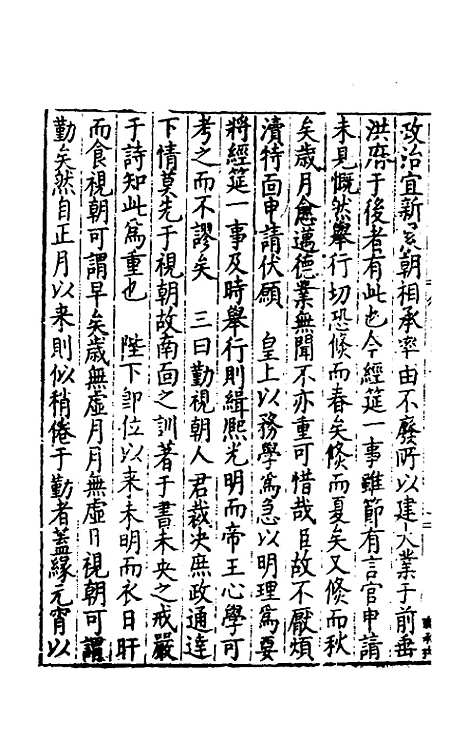 政治宜新累朝相承率由不廢所以建大業于前垂
洪庥于後者有此也今經筵一事雖節有言官申請
未見慨然舉行切恐倏而春矣倏而夏矣又倏而秋
矣歲月愈邁德業無聞不亦重可惜哉臣故不厭煩
瀆特靣申請伏願　皇上以務學爲急以明理爲要
將經筵一事及時舉行則緝熙光明而帝王心學可
考之而不謬矣　三曰勤視朝人君裁决庶政通達
下情莫先于視朝故南面之訓著于書未央之戒嚴
于詩知此爲重也　陛下卽位以来未明而衣日旰
而食視朝可謂早矣歲無虛月月無虛日視朝可謂
勤矣然自正月以来則似稍倦于勤者蓋緣元宵以